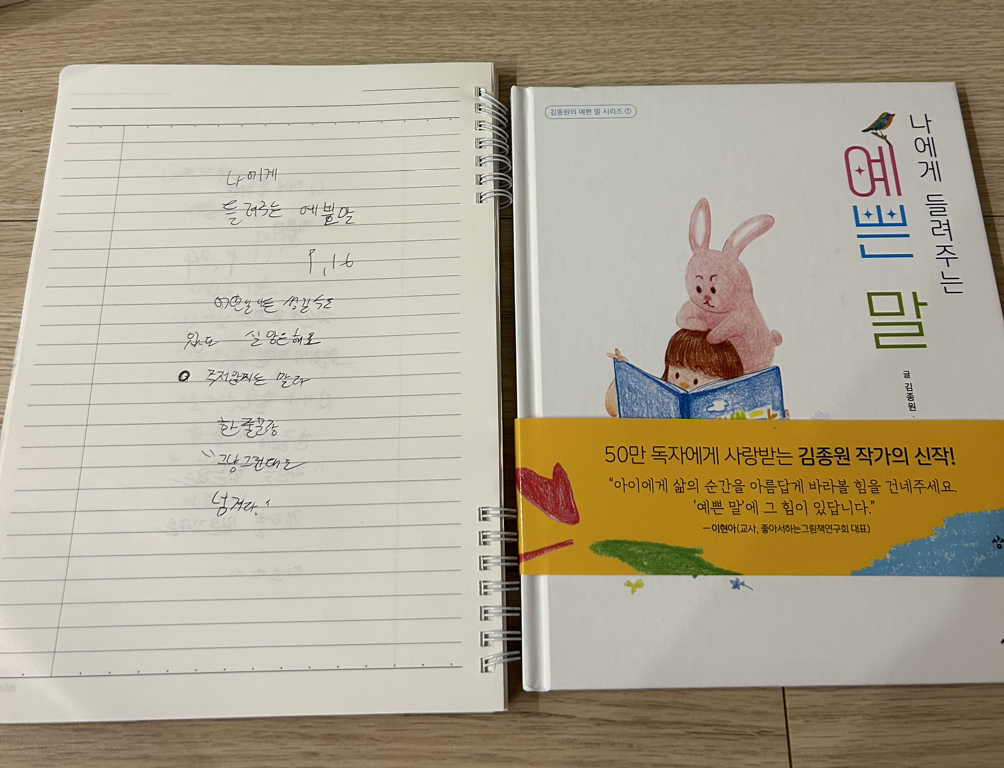 나에게
들려주는 예쁜말
P.16
어떤일에든 생길수도
있고 실망은해도
주저앉지는 말라
한줄문장
"그냥그런대로
넘겨라."
김종원의 예쁜 말 시리즈 ①
나에게 들려주는
예쁜 말
글 김종원·
50만 독자에게 사랑받는 김종원 작가의 신작!
"아이에게 삶의 순간을 아름답게 바라볼 힘을 건네주세요.
'예쁜 말'에 그 힘이 있답니다."
─이현아(교사, 좋아서하는그림책연구회 대표)